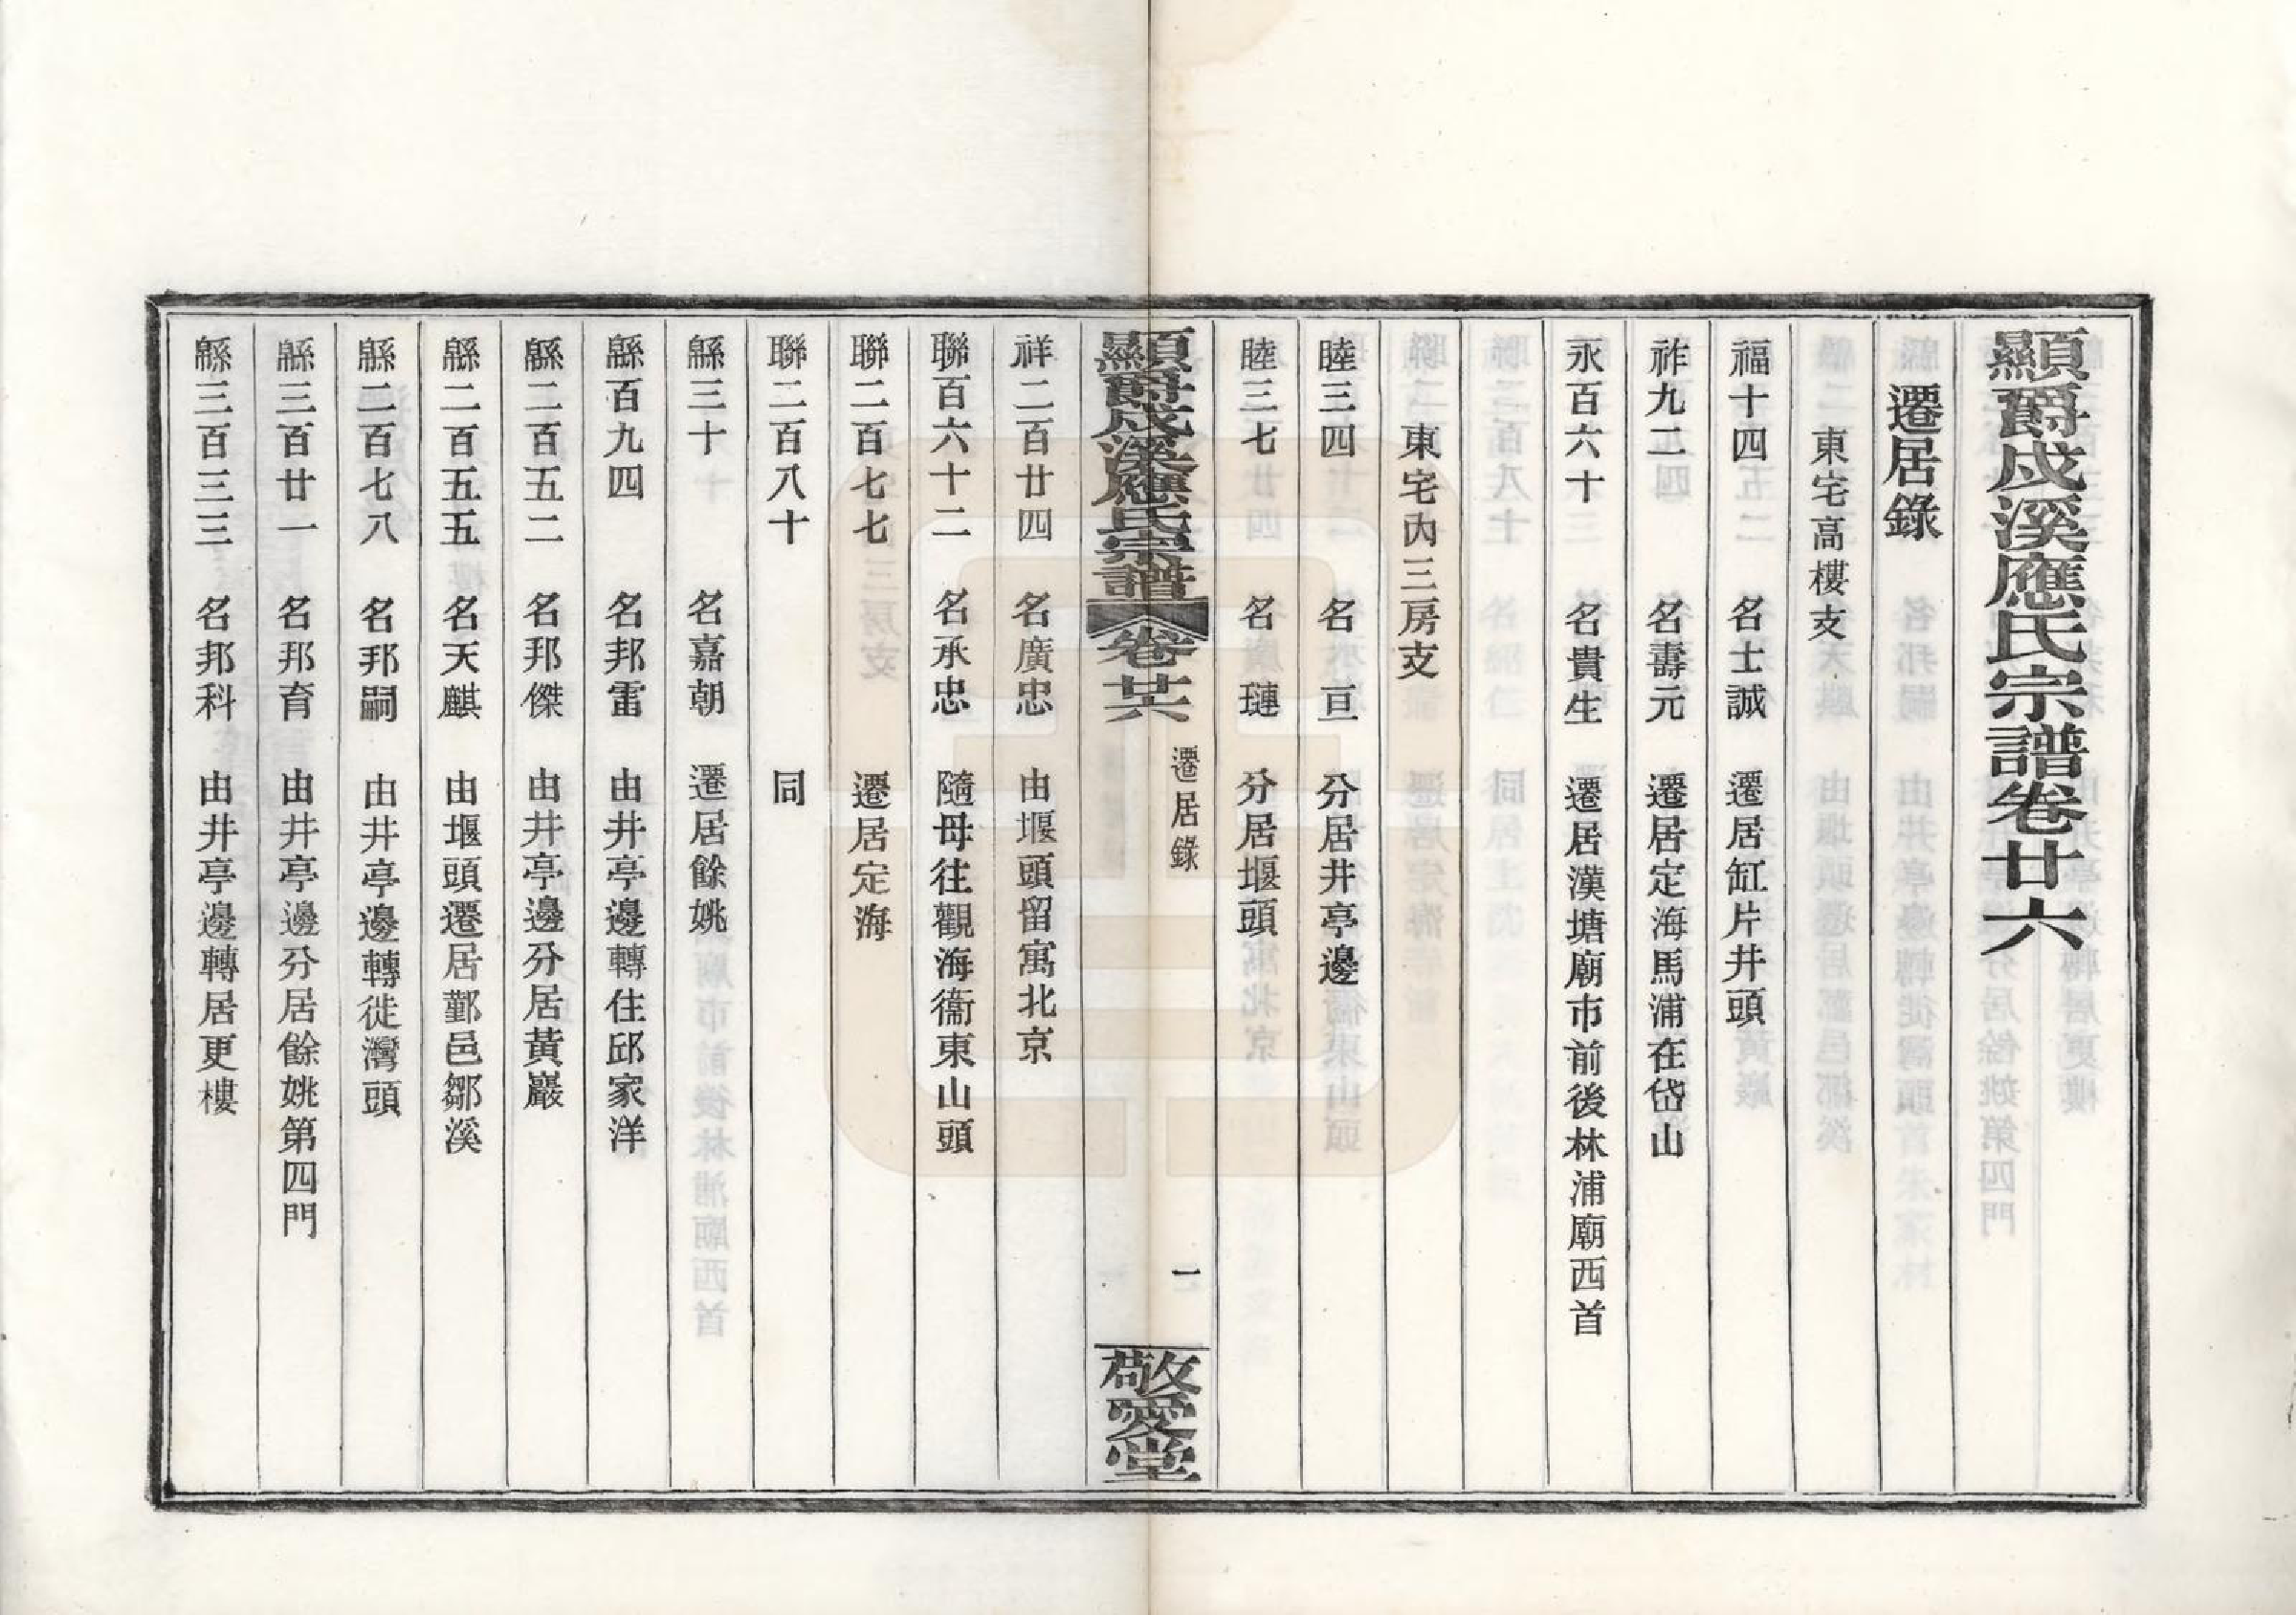 顯爵戍溪應氏宗譜卷廿六
遷居錄
東宅高樓支
福十四　名士誠　遷居缸片井頭
祚九二　名壽元　遷居定海馬浦在岱山
永百六十　名貴生　遷居漢塘廟市前後林浦廟西首
東宅內三房支
睦三四　名亘　分居井亭邊
睦三七　名璉　分居堰頭
顯爵戍溪應氏宗譜　卷廿六　遷居錄　一　敬愛堂
祥二百廿四　名廣忠　由堰頭留寓北京
聯百六十二　名承忠　隨母往觀海衞東山頭
聯二百七七　遷居定海
聯二百八十　同
緜三十　名嘉朝　遷居餘姚
緜百九四　名邦雷　由井亭邊轉住邱家洋
緜二百五二　名邦傑　由井亭邊分居黃巖
緜二百五五　名天麒　由堰頭遷居鄞邑鄒溪
緜二百七八　名邦嗣　由井亭邊轉徙灣頭
緜三百廿一　名邦育　由井亭邊分居餘姚第四門
緜三百三三　名邦科　由井亭邊轉居更樓